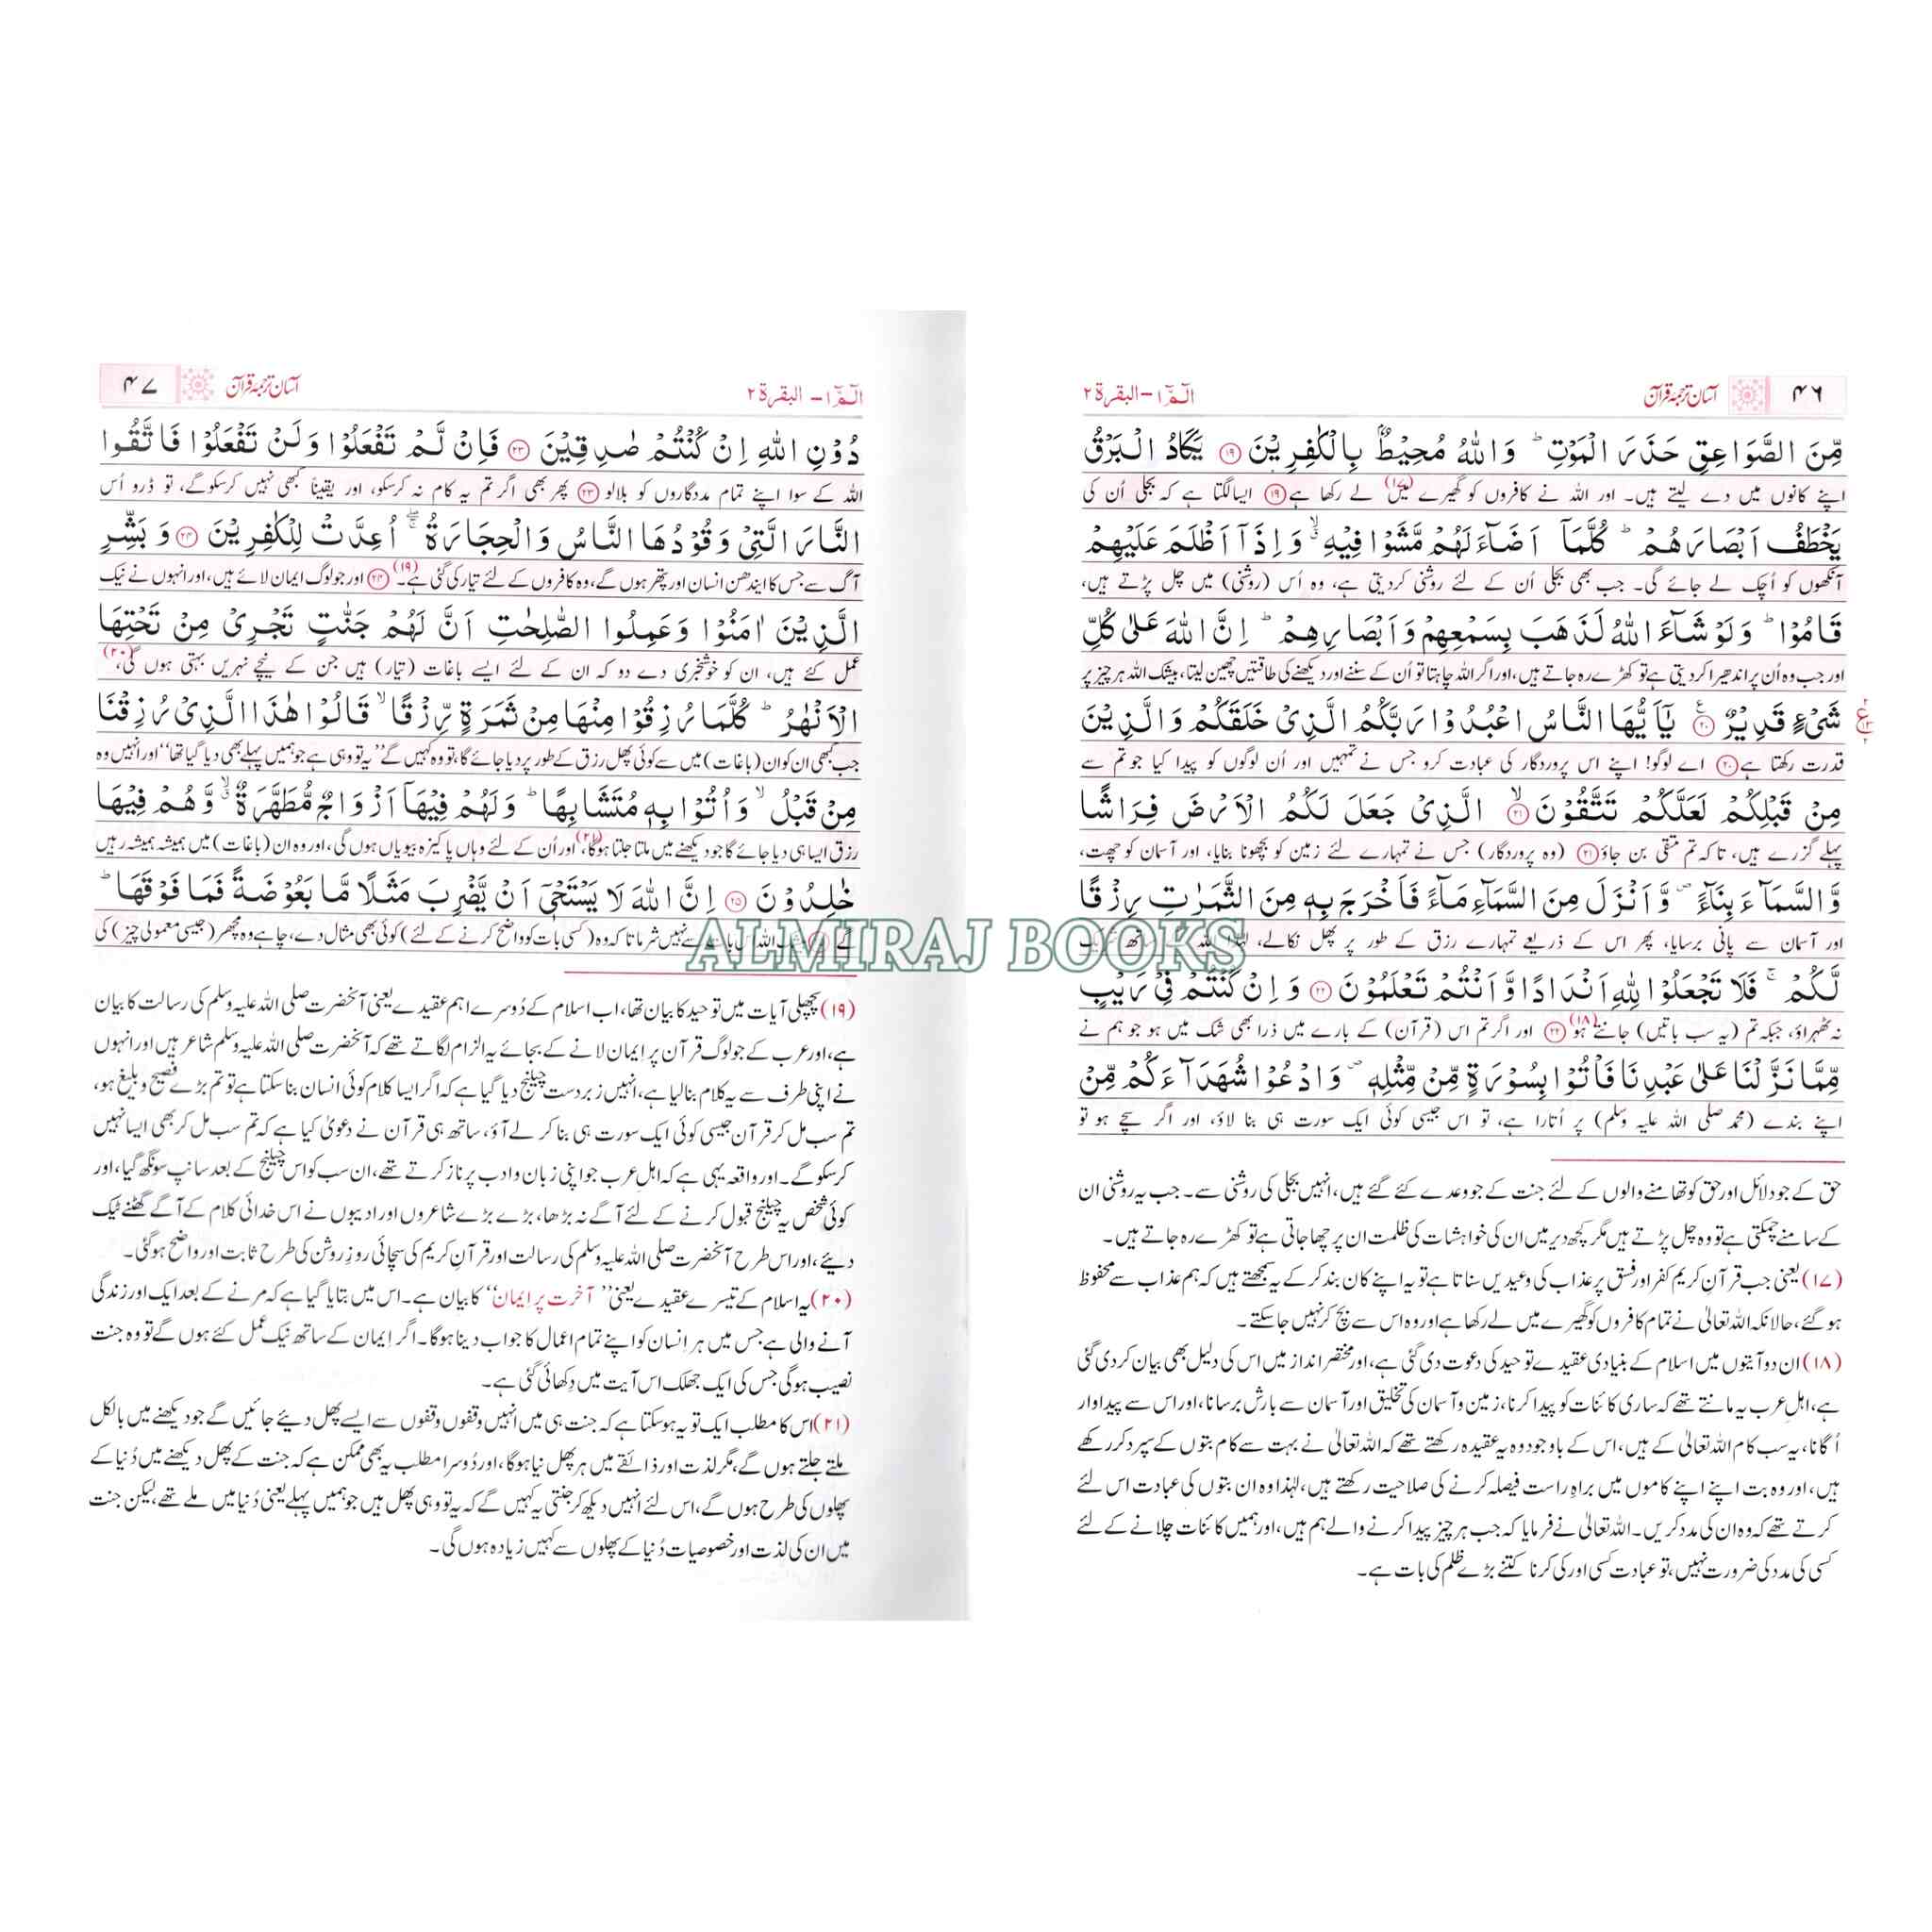 ۴۶
آسان ترجمۂ قرآن
الٓمّٓ ۱ – البقرۃ ۲
مِّنَ الصَّوَاعِقِ حَذَرَ الْمَوْتِ ؕ وَاللّٰهُ مُحِيْطٌۢ بِالْكٰفِرِيْنَ ۱۹ يَكَادُ الْبَرْقُ
اپنے کانوں میں دے لیتے ہیں۔ اور اللہ نے کافروں کو گھیرے میں (۱۷) لے رکھا ہے ۱۹ ایسا لگتا ہے کہ بجلی اُن کی
يَخْطَفُ اَبْصَارَهُمْ ؕ كُلَّمَاۤ اَضَآءَ لَهُمْ مَّشَوْا فِيْهِ ۙ وَاِذَاۤ اَظْلَمَ عَلَيْهِمْ
آنکھوں کو اُچک لے جائے گی۔ جب بھی بجلی اُن کے لئے روشنی کردیتی ہے، وہ اُس (روشنی) میں چل پڑتے ہیں،
قَامُوْا ؕ وَلَوْ شَآءَ اللّٰهُ لَذَهَبَ بِسَمْعِهِمْ وَاَبْصَارِهِمْ ؕ اِنَّ اللّٰهَ عَلٰى كُلِّ
اور جب وہ اُن پر اندھیرا کردیتی ہے تو کھڑے رہ جاتے ہیں، اور اگر اللہ چاہتا تو اُن کے سننے اور دیکھنے کی طاقتیں چھین لیتا، بیشک اللہ ہر چیز پر
شَيْءٍ قَدِيْرٌ ۲۰ ع يٰۤاَيُّهَا النَّاسُ اعْبُدُوْا رَبَّكُمُ الَّذِيْ خَلَقَكُمْ وَالَّذِيْنَ
قدرت رکھتا ہے ۲۰ اے لوگو! اپنے اس پروردگار کی عبادت کرو جس نے تمہیں اور اُن لوگوں کو پیدا کیا جو تم سے
مِنْ قَبْلِكُمْ لَعَلَّكُمْ تَتَّقُوْنَ ۙ ۲۱ الَّذِيْ جَعَلَ لَكُمُ الْاَرْضَ فِرَاشًا
پہلے گزرے ہیں، تاکہ تم متقی بن جاؤ ۲۱ (وہ پروردگار) جس نے تمہارے لئے زمین کو بچھونا بنایا، اور آسمان کو چھت،
وَّالسَّمَآءَ بِنَآءً ۪ وَّاَنْزَلَ مِنَ السَّمَآءِ مَآءً فَاَخْرَجَ بِهٖ مِنَ الثَّمَرٰتِ رِزْقًا
اور آسمان سے پانی برسایا، پھر اس کے ذریعے تمہارے رزق کے طور پر پھل نکالے، لہٰذا اللہ کے ساتھ شریک
لَّكُمْ ۚ فَلَا تَجْعَلُوْا لِلّٰهِ اَنْدَادًا وَّاَنْتُمْ تَعْلَمُوْنَ ۲۲ وَاِنْ كُنْتُمْ فِيْ رَيْبٍ
نہ ٹھہراؤ، جبکہ تم (یہ سب باتیں) جانتے ہو (۱۸) ۲۲ اور اگر تم اس (قرآن) کے بارے میں ذرا بھی شک میں ہو جو ہم نے
مِّمَّا نَزَّلْنَا عَلٰى عَبْدِنَا فَاْتُوْا بِسُوْرَةٍ مِّنْ مِّثْلِهٖ ۪ وَادْعُوْا شُهَدَآءَكُمْ مِّنْ
اپنے بندے (محمد صلی اللہ علیہ وسلم) پر اُتارا ہے، تو اس جیسی کوئی ایک سورت ہی بنا لاؤ، اور اگر سچے ہو تو
حق کے جو دلائل اور حق کو تھامنے والوں کے لئے جنت کے جو وعدے کئے گئے ہیں، انہیں بجلی کی روشنی سے۔ جب یہ روشنی ان
کے سامنے چمکتی ہے تو وہ چل پڑتے ہیں مگر کچھ دیر میں ان کی خواہشات کی ظلمت ان پر چھا جاتی ہے تو کھڑے رہ جاتے ہیں۔
(۱۷) یعنی جب قرآنِ کریم کفر اور فسق پر عذاب کی وعیدیں سناتا ہے تو یہ اپنے کان بند کرکے یہ سمجھتے ہیں کہ ہم عذاب سے محفوظ
ہوگئے، حالانکہ اللہ تعالیٰ نے تمام کافروں کو گھیرے میں لے رکھا ہے اور وہ اس سے بچ کر نہیں جاسکتے۔
(۱۸) ان دو آیتوں میں اسلام کے بنیادی عقیدے توحید کی دعوت دی گئی ہے، اور مختصر انداز میں اس کی دلیل بھی بیان کردی گئی
ہے، اہلِ عرب یہ مانتے تھے کہ ساری کائنات کو پیدا کرنا، زمین و آسمان کی تخلیق اور آسمان سے بارش برسانا، اور اس سے پیداوار
اُگانا، یہ سب کام اللہ تعالیٰ کے ہیں، اس کے باوجود وہ یہ عقیدہ رکھتے تھے کہ اللہ تعالیٰ نے بہت سے کام بتوں کے سپرد کر رکھے
ہیں، اور وہ بت اپنے اپنے کاموں میں براہِ راست فیصلہ کرنے کی صلاحیت رکھتے ہیں، لہٰذا وہ ان بتوں کی عبادت اس لئے
کرتے تھے کہ وہ ان کی مدد کریں۔ اللہ تعالیٰ نے فرمایا کہ جب ہر چیز پیدا کرنے والے ہم ہیں، اور ہمیں کائنات چلانے کے لئے
کسی کی مدد کی ضرورت نہیں، تو عبادت کسی اور کی کرنا کتنے بڑے ظلم کی بات ہے۔
الٓمّٓ ۱ – البقرۃ ۲
آسان ترجمۂ قرآن
۴۷
دُوْنِ اللّٰهِ اِنْ كُنْتُمْ صٰدِقِيْنَ ۲۳ فَاِنْ لَّمْ تَفْعَلُوْا وَلَنْ تَفْعَلُوْا فَاتَّقُوا
اللہ کے سوا اپنے تمام مددگاروں کو بلالو ۲۳ پھر بھی اگر تم یہ کام نہ کرسکو، اور یقیناً کبھی نہیں کرسکو گے، تو ڈرو اُس
النَّارَ الَّتِيْ وَقُوْدُهَا النَّاسُ وَالْحِجَارَةُ ۚۖ اُعِدَّتْ لِلْكٰفِرِيْنَ ۲۴ وَبَشِّرِ
آگ سے جس کا ایندھن انسان اور پتھر ہوں گے، وہ کافروں کے لئے تیار کی گئی ہے۔ (۱۹) ۲۴ اور جو لوگ ایمان لائے ہیں، اور انہوں نے نیک
الَّذِيْنَ اٰمَنُوْا وَعَمِلُوا الصّٰلِحٰتِ اَنَّ لَهُمْ جَنّٰتٍ تَجْرِيْ مِنْ تَحْتِهَا
عمل کئے ہیں، ان کو خوشخبری دے دو کہ ان کے لئے ایسے باغات (تیار) ہیں جن کے نیچے نہریں بہتی ہوں گی، (۲۰)
الْاَنْهٰرُ ؕ كُلَّمَا رُزِقُوْا مِنْهَا مِنْ ثَمَرَةٍ رِّزْقًا ۙ قَالُوْا هٰذَا الَّذِيْ رُزِقْنَا
جب کبھی ان کو ان (باغات) میں سے کوئی پھل رزق کے طور پر دیا جائے گا، تو وہ کہیں گے ”یہ تو وہی ہے جو ہمیں پہلے بھی دیا گیا تھا“ اور انہیں وہ
مِنْ قَبْلُ ۙ وَاُتُوْا بِهٖ مُتَشَابِهًا ؕ وَلَهُمْ فِيْهَاۤ اَزْوَاجٌ مُّطَهَّرَةٌ ۙ وَّهُمْ فِيْهَا
رزق ایسا ہی دیا جائے گا جو دیکھنے میں ملتا جلتا ہوگا، (۲۱) اور اُن کے لئے وہاں پاکیزہ بیویاں ہوں گی، اور وہ ان (باغات) میں ہمیشہ ہمیشہ رہیں
خٰلِدُوْنَ ۲۵ اِنَّ اللّٰهَ لَا يَسْتَحْيٖۤ اَنْ يَّضْرِبَ مَثَلًا مَّا بَعُوْضَةً فَمَا فَوْقَهَا ؕ
گے ۲۵ بیشک اللہ اس بات سے نہیں شرماتا کہ وہ (کسی بات کو واضح کرنے کے لئے) کوئی بھی مثال دے، چاہے وہ مچھر (جیسی معمولی چیز) کی
(۱۹) پچھلی آیات میں توحید کا بیان تھا، اب اسلام کے دُوسرے اہم عقیدے یعنی آنحضرت صلی اللہ علیہ وسلم کی رسالت کا بیان
ہے، اور عرب کے جو لوگ قرآن پر اِیمان لانے کے بجائے یہ الزام لگاتے تھے کہ آنحضرت صلی اللہ علیہ وسلم شاعر ہیں اور انہوں
نے اپنی طرف سے یہ کلام بنالیا ہے، انہیں زبردست چیلنج دیا گیا ہے کہ اگر ایسا کلام کوئی انسان بنا سکتا ہے تو تم بڑے فصیح و بلیغ ہو،
تم سب مل کر قرآن جیسی کوئی ایک سورت ہی بنا کر لے آؤ، ساتھ ہی قرآن نے دعویٰ کیا ہے کہ تم سب مل کر بھی ایسا نہیں
کرسکو گے۔ اور واقعہ یہی ہے کہ اہلِ عرب جو اپنی زبان و ادب پر ناز کرتے تھے، ان سب کو اس چیلنج کے بعد سانپ سونگھ گیا، اور
کوئی شخص یہ چیلنج قبول کرنے کے لئے آگے نہ بڑھا، بڑے بڑے شاعروں اور ادیبوں نے اس خدائی کلام کے آگے گھٹنے ٹیک
دیئے، اور اس طرح آنحضرت صلی اللہ علیہ وسلم کی رسالت اور قرآنِ کریم کی سچائی روزِ روشن کی طرح ثابت اور واضح ہوگئی۔
(۲۰) یہ اسلام کے تیسرے عقیدے یعنی ”آخرت پر اِیمان“ کا بیان ہے۔ اس میں بتایا گیا ہے کہ مرنے کے بعد ایک اور زندگی
آنے والی ہے جس میں ہر انسان کو اپنے تمام اعمال کا جواب دینا ہوگا۔ اگر اِیمان کے ساتھ نیک عمل کئے ہوں گے تو وہ جنت
نصیب ہوگی جس کی ایک جھلک اس آیت میں دِکھائی گئی ہے۔
(۲۱) اس کا مطلب ایک تو یہ ہوسکتا ہے کہ جنت ہی میں انہیں وقفوں وقفوں سے ایسے پھل دیئے جائیں گے جو دیکھنے میں بالکل
ملتے جلتے ہوں گے، مگر لذت اور ذائقے میں ہر پھل نیا ہوگا، اور دُوسرا مطلب یہ بھی ممکن ہے کہ جنت کے پھل دیکھنے میں دُنیا کے
پھلوں کی طرح ہوں گے، اس لئے انہیں دیکھ کر جنتی یہ کہیں گے کہ یہ تو وہی پھل ہیں جو ہمیں پہلے یعنی دُنیا میں ملے تھے، لیکن جنت
میں ان کی لذت اور خصوصیات دُنیا کے پھلوں سے کہیں زیادہ ہوں گی۔
ALMIRAJ BOOKS